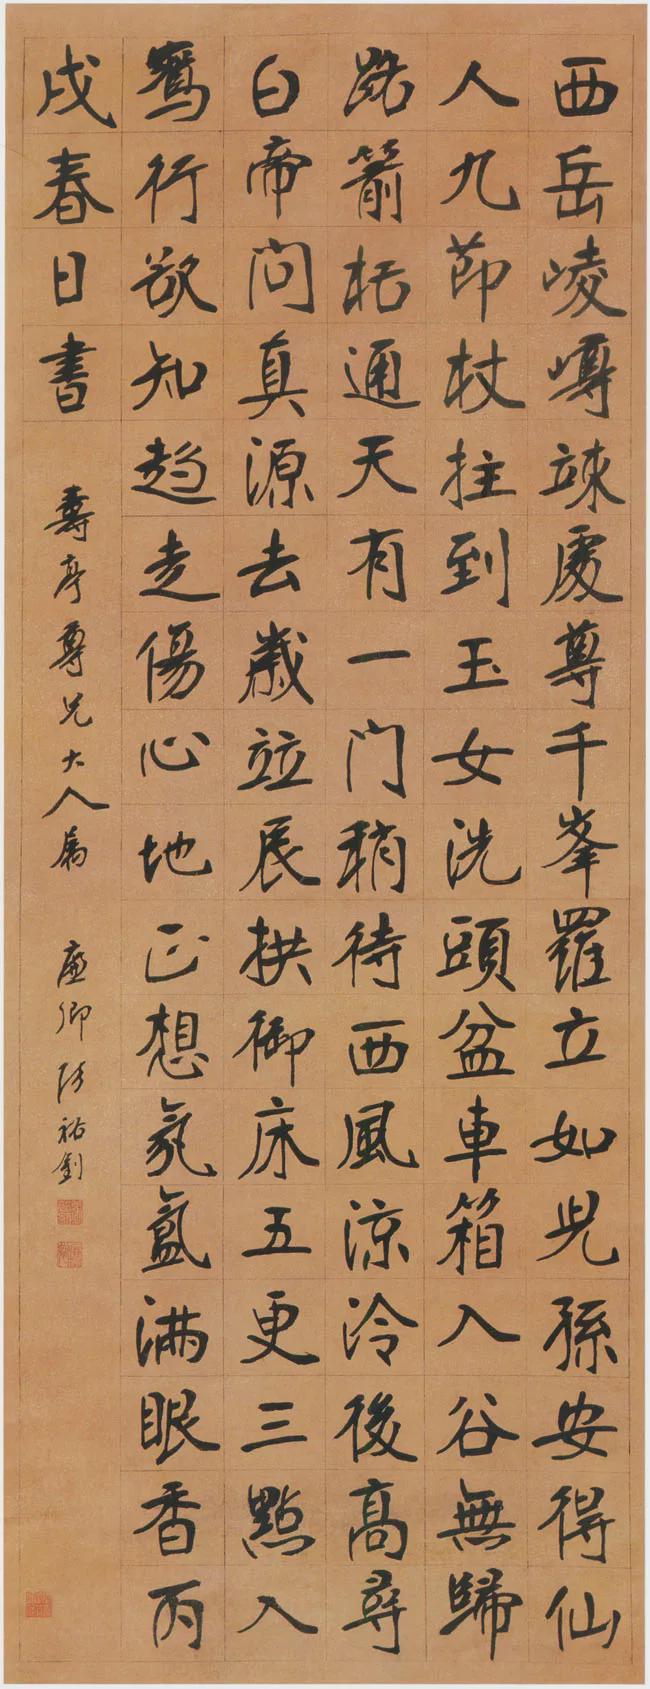 西岳崚嶒竦處尊千峯羅立如兒孫安得仙
人九節杖拄到玉女洗頭盆車箱入谷無歸
路箭栝通天有一門稍待西風涼冷後高尋
白帝問真源去歲竝辰拱御床五更三點入
鵉行欲知趍走傷心地正想氛氳滿眼香丙
戌春日書
壽亭尊兄大人屬
廉卿張裕釗